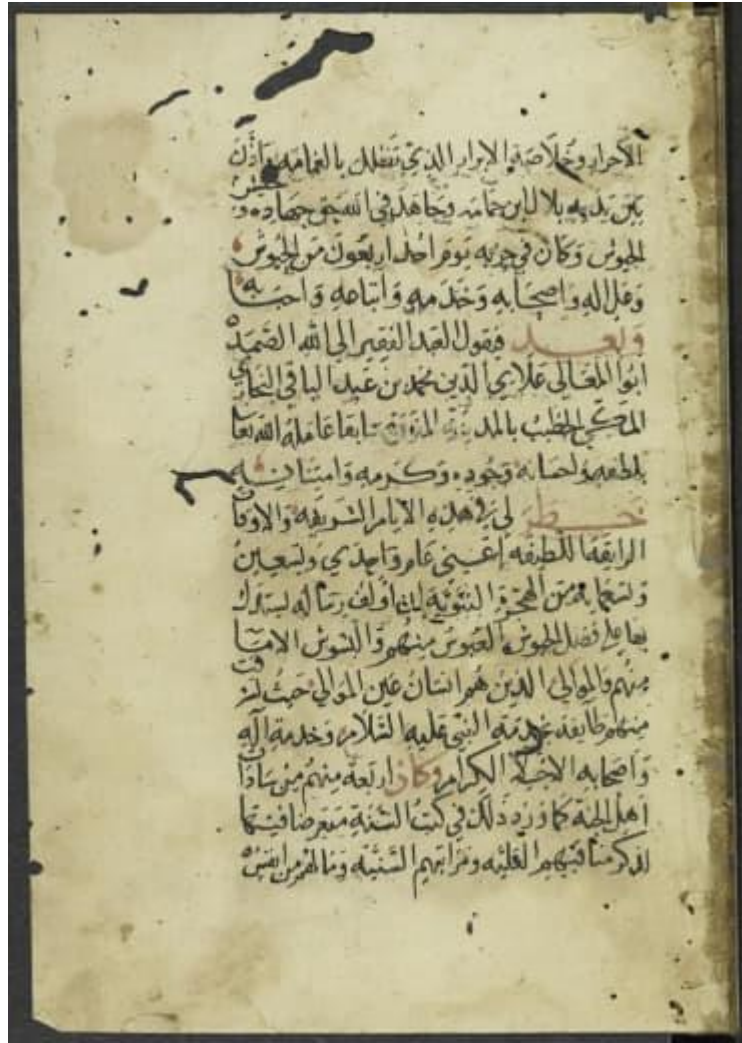 الأحرار وخلاصة الابرار الذي تظلل بالغمامه وأذن
بين يديه بلال ابن حمامة وجاهد في الله حق جهاده و
الحبوش وكان في حربه يوم احد اربعون من الحبوش
وعلى اله واصحابه وخدمه واتباعه واحبابه
وبعد فيقول العبد الفقير الى الله الصمد
ابوا المعالي علاي الدين محمد بن عبد الباقي البخاري
المكي الخطيب بالمدينة المنورة سابقا عامله الله تعا
بلطفه واحسانه وجوده وكرمه وامتنانه
خطر لي في هذه الايام الشريفه والاوقات
الرايقة اللطيفه اعني عام واحدي وتسعين
وتسعمايه من الهجرة النبوية ان اولف رساله يستدل
بها على فضل الحبوش العبوس منهم والبشوش الاما
منهم والموالي الذين هم انسان عين الموالي حيث
منهم طايفة بخدمة النبي عليه السلام وخدمة آله
واصحابه الاجلة الكرام وكان اربعة منهم من سادات
اهل الجنة كما ورد ذلك في كتب السنة متعرضا فيها
لذكر مناقبهم العليه ومراتبهم السنية وما لهم من